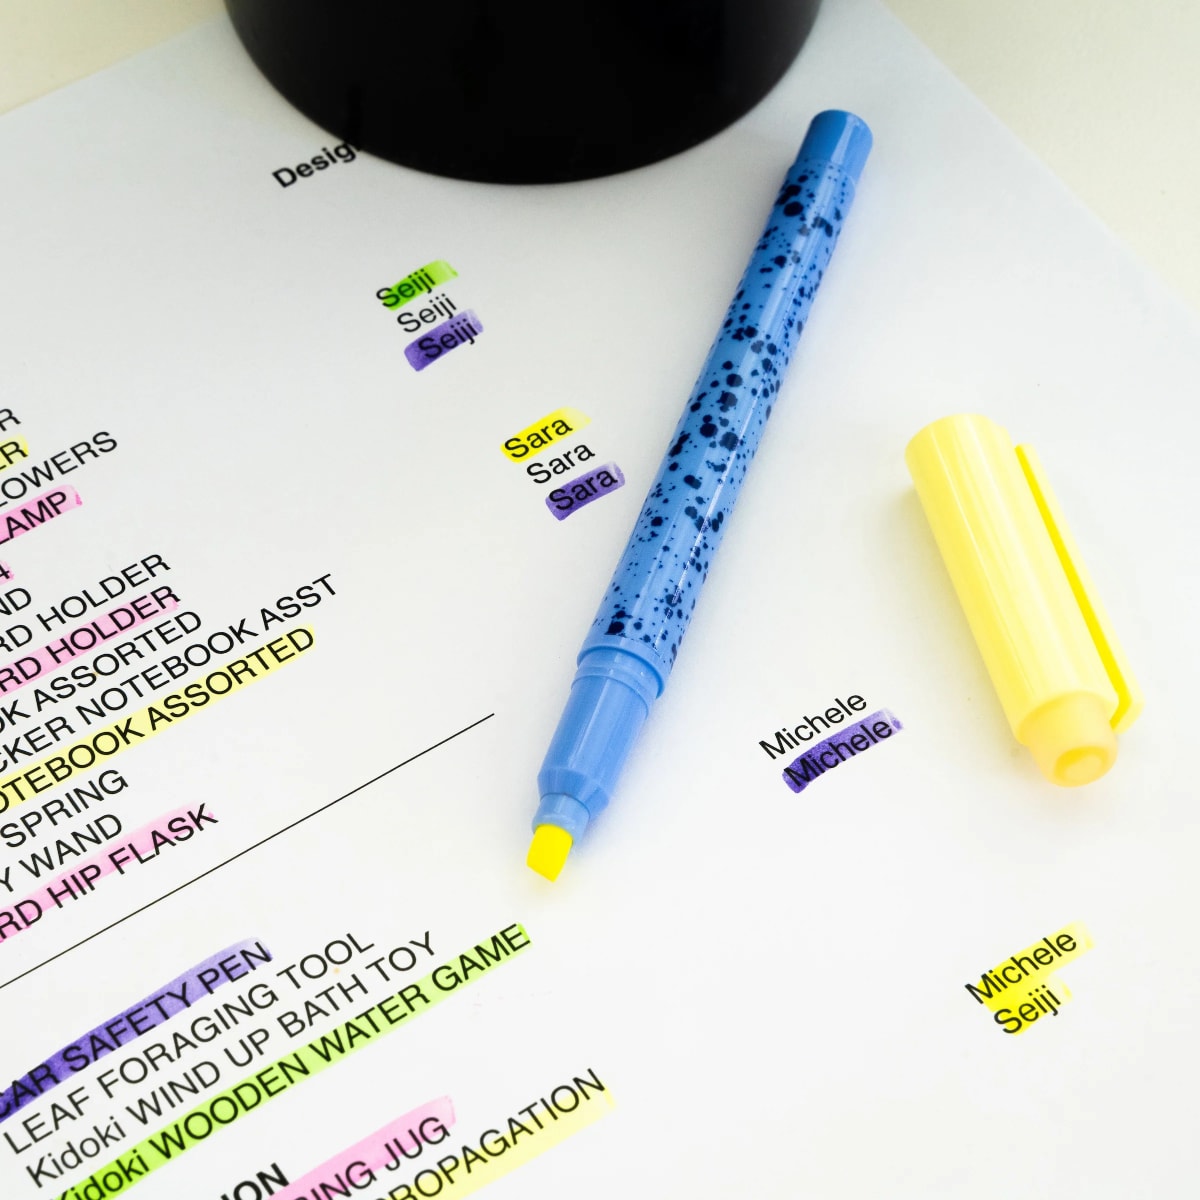 Desig
Seiji
Seiji
Seiji
Sara
Sara
Sara
R
ER
LOWERS
LAMP
4
ND
RD HOLDER
RD HOLDER
OK ASSORTED
CKER NOTEBOOK ASST
OTEBOOK ASSORTED
SPRING
Y WAND
RD HIP FLASK
Michele
Michele
CAR SAFETY PEN
LEAF FORAGING TOOL
Kidoki WIND UP BATH TOY
Kidoki WOODEN WATER GAME
Michele
Seiji
ION
RING JUG
PROPAGATION